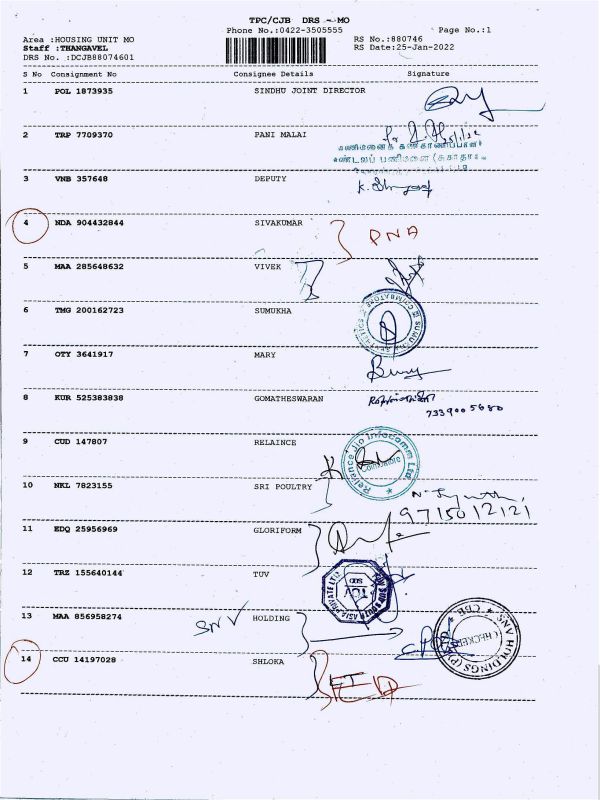 TPC/CJB DRS - MO
Phone No.:0422-3505555 Page No.:1
Area :HOUSING UNIT MO RS No.:880746
Staff :THANGAVEL RS Date:25-Jan-2022
DRS No. :DCJB88074601
S No Consignment No Consignee Details Signature
1 POL 1873935 SINDHU JOINT DIRECTOR
2 TRP 7709370 PANI MALAI
3 VNB 357648 DEPUTY
4 NDA 904432844 SIVAKUMAR PNA
5 MAA 285648632 VIVEK
6 TMG 200162723 SUMUKHA
7 OTY 3641917 MARY
8 KUR 525383838 GOMATHESWARAN
7339005680
9 CUD 147807 RELAINCE
Reliance Jio Infocomm Ltd
Coimbatore
10 NKL 7823155 SRI POULTRY
9715012121
11 EDQ 25956969 GLORIFORM
12 TRZ 155640144 TUV
13 MAA 856958274 HOLDING
SNV
SNV HOLDINGS (P)
CBE
CHECKED
14 CCU 14197028 SHLOKA